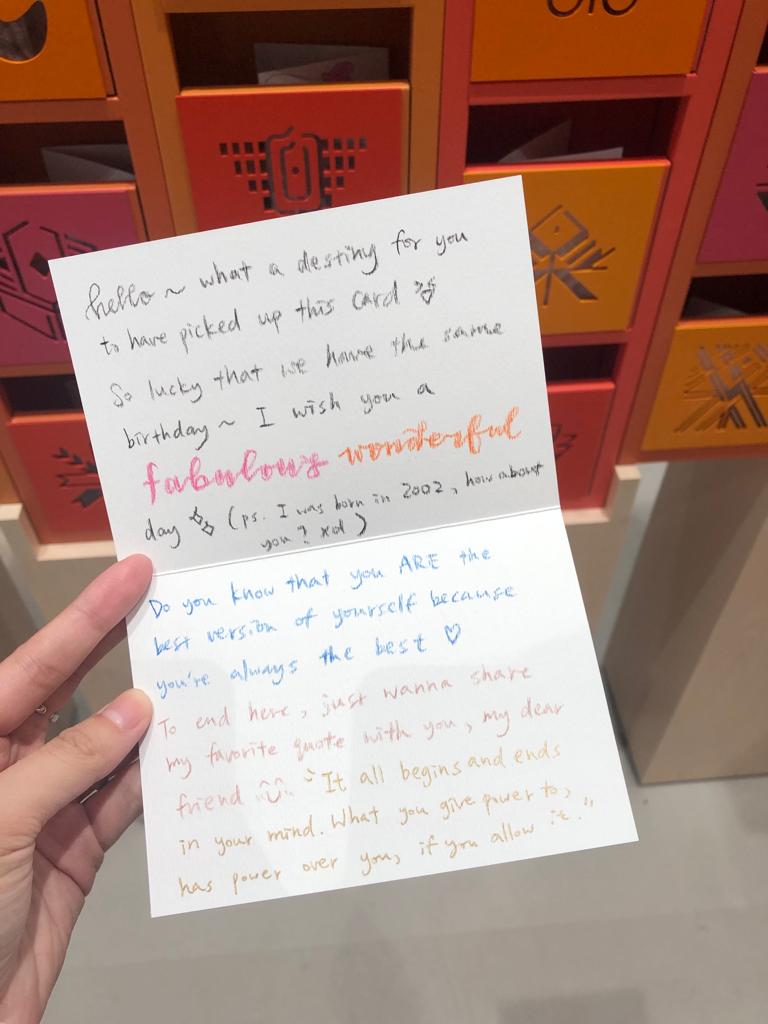 hello ~ what a destiny for you
to have picked up this card
So lucky that we have the same
birthday ~ I wish you a
fabulous wonderful
day (ps. I was born in 2002, how about
you? xd)
Do you know that you ARE the
best version of yourself because
you're always the best ♡
To end here, just wanna share
my favorite quote with you, my dear
friend "It all begins and ends
in your mind. What you give power to,
has power over you, if you allow it."